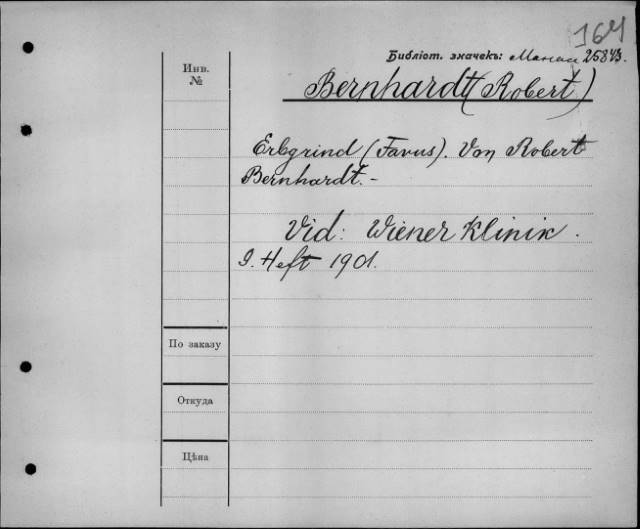 164
Библіот. значекъ: Манас 25843.
Инв.
№
Bernhardt (Robert)
Erbgrind (Favus). Von Robert
Bernhardt.-
Vid: Wiener Klinik.
9. Heft 1901.
По заказу
Откуда
Цѣна